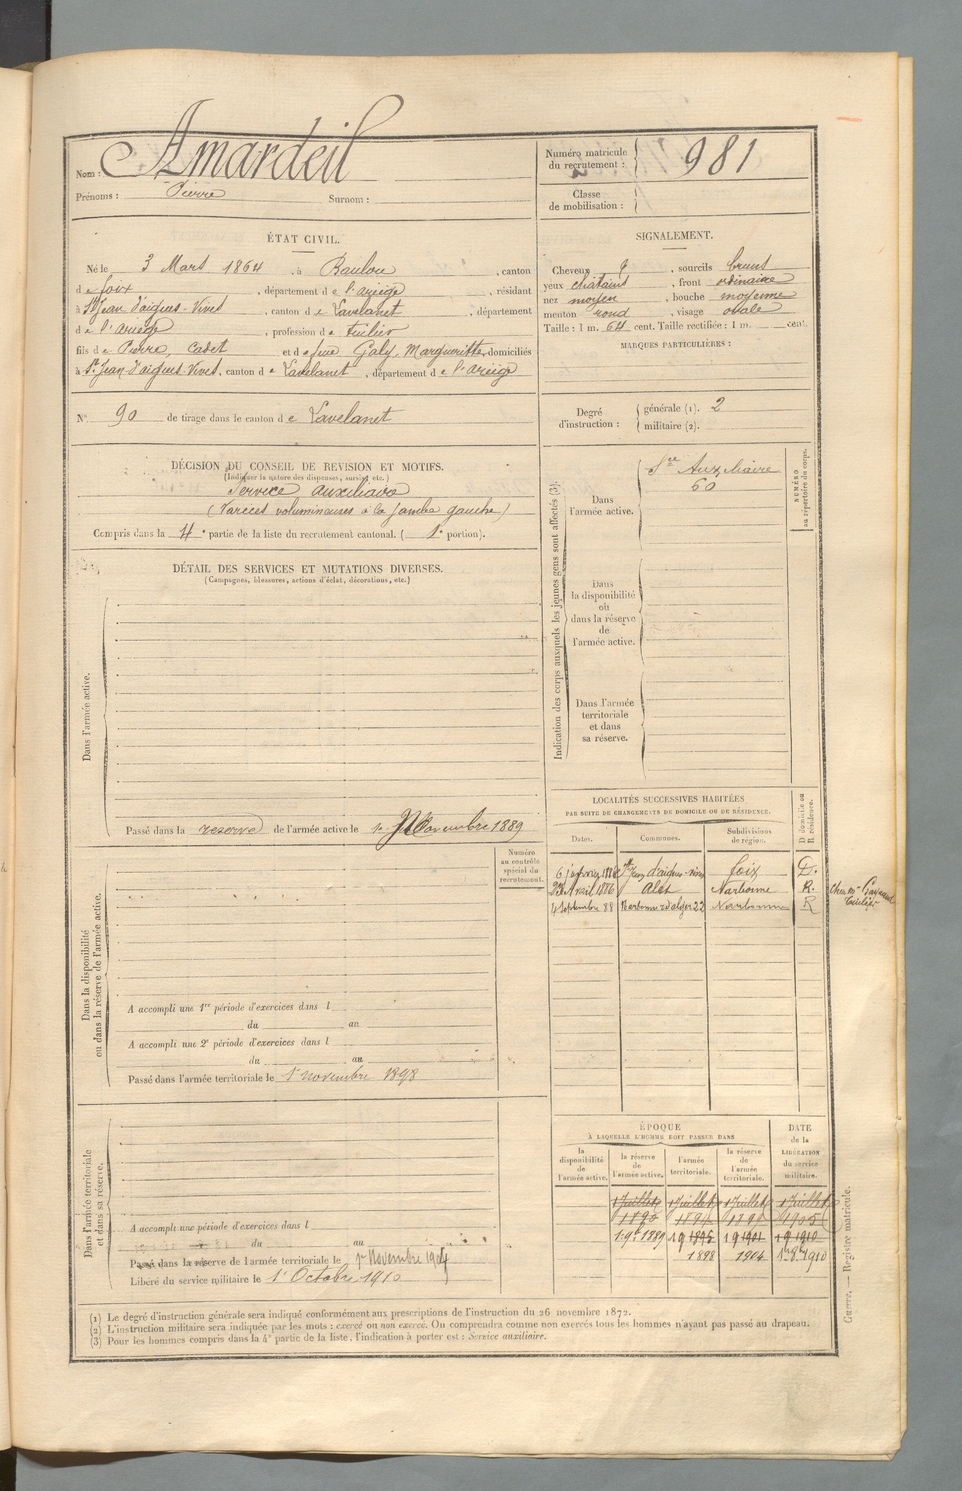 Nom : Amardeil
Prénoms : Pierre Surnom :
Numéro matricule du recrutement : 981
Classe de mobilisation :
ÉTAT CIVIL.
Né le 3 Mars 1864, à Baulou, canton
de foix, département de l'ariège, résidant
à St Jean d'aigues-Vives, canton de Lavelanet, département
de l'ariège, profession de tuilier
fils de Pierre, Cadet et de feue Galy, Margueritte, domiciliés
à St Jean-d'aigues-Vives, canton de Lavelanet, département de l'ariège
SIGNALEMENT.
Cheveux , sourcils bruns
yeux chatains, front ordinaire
nez moyen, bouche moyenne
menton rond, visage ovale
Taille : 1 m. 64 cent. Taille rectifiée : 1 m. cent.
MARQUES PARTICULIÈRES :
N° 90 de tirage dans le canton de Lavelanet
Degré d'instruction : générale (1). 2
militaire (2).
DÉCISION DU CONSEIL DE REVISION ET MOTIFS.
(Indiquer la nature des dispenses, sursis, etc.)
Service auxiliaire
(Varices volumineuses à la jambe gauche)
Compris dans la 4e partie de la liste du recrutement cantonal. ( 1e portion).
DÉTAIL DES SERVICES ET MUTATIONS DIVERSES.
(Campagnes, blessures, actions d'éclat, décorations, etc.)
Dans l'armée active.
Passé dans la reserve de l'armée active le 1r Novembre 1889
Indication des corps auxquels les jeunes gens sont affectés (3).
Dans l'armée active.
Sce Auxiliaire
60
NUMÉRO au répertoire du corps.
Dans la disponibilité ou dans la réserve de l'armée active.
Dans l'armée territoriale et dans sa réserve.
Dans la disponibilité ou dans la réserve de l'armée active.
Numéro au contrôle spécial du recrutement.
A accompli une 1re période d'exercices dans l
du au
A accompli une 2e période d'exercices dans l
du au
Passé dans l'armée territoriale le 1r novembre 1898
LOCALITÉS SUCCESSIVES HABITÉES
PAR SUITE DE CHANGEMENTS DE DOMICILE OU DE RÉSIDENCE.
D domicile ou R résidence.
Dates. Communes. Subdivisions de région.
St Jean d'aigues-vives foix D.
Avril 1886 Alet Narbonne R.
4 Septembre 88 Narbonne r d'alger 22 Narbonne R
Dans l'armée territoriale et dans sa réserve.
A accompli une période d'exercices dans l
du au
Passé dans la réserve de l'armée territoriale le 1r Novembre 1904
Libéré du service militaire le 1r Octobre 1910
ÉPOQUE
À LAQUELLE L'HOMME DOIT PASSER DANS
DATE de la LIBÉRATION du service militaire.
la disponibilité de l'armée active. la réserve de l'armée active. l'armée territoriale. la réserve de l'armée territoriale.
1 Juillet 1 Juillet 1 Juillet 1 Juillet
1890 1905
1898 1904
Guerre. — Registre matricule.
(1) Le degré d'instruction générale sera indiqué conformément aux prescriptions de l'instruction du 26 novembre 1872.
(2) L'instruction militaire sera indiquée par les mots : exercé ou non exercé. On comprendra comme non exercés tous les hommes n'ayant pas passé au drapeau.
(3) Pour les hommes compris dans la 4e partie de la liste, l'indication à porter est : Service auxiliaire.